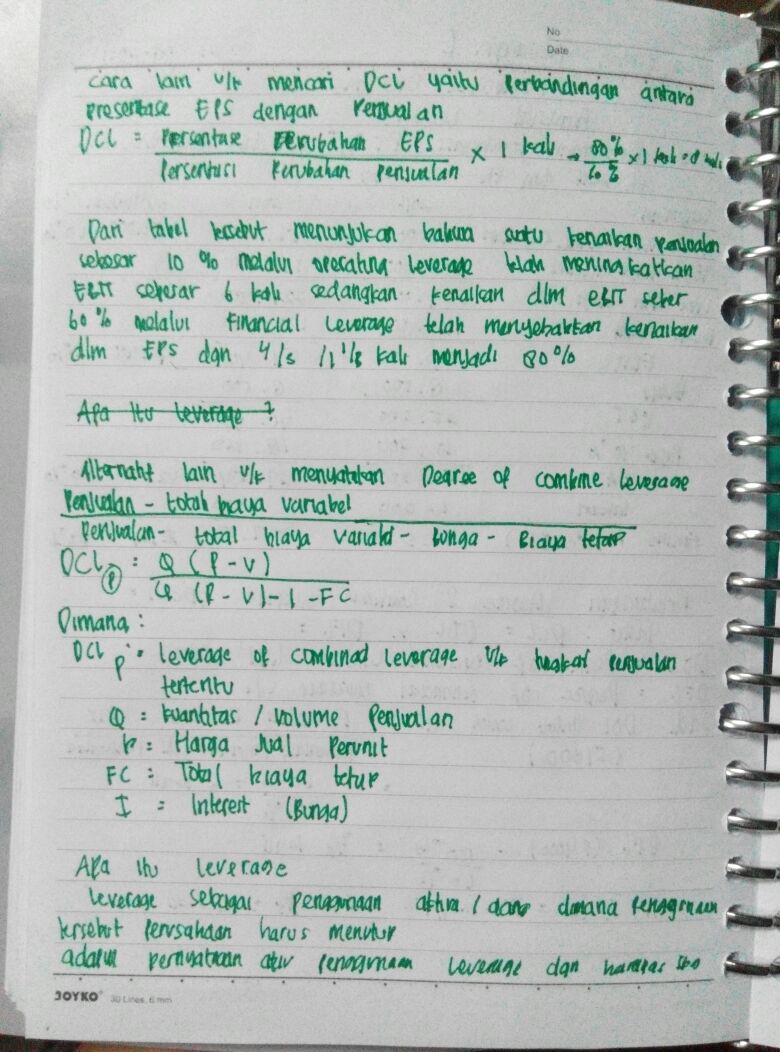 No
Date
cara lain u/k mencari DCL yaitu Perbandingan antara
presentase EPS dengan Penjualan
DCL = Persentase Perubahan EPS × 1 kali → 80% × 1 kali = 8 kali
Persentasi Perubahan Penjualan 10%
Dari tabel tersebut menunjukan bahwa suatu kenaikan Penjualan
sebesar 10 % melalui operating leverage telah meningkatkan
EBIT sebesar 6 kali sedangkan kenaikan dlm EBIT sebsr
60 % melalui Financial Leverage telah menyebabkan kenaikan
dlm EPS dgn 4/3 / 1 1/3 kali menjadi 80%
Apa itu Leverage ?
Alternatif lain u/k menyatakan Degree of combine Leverage
Penjualan - total biaya variabel
Penjualan - total biaya variabel - Bunga - Biaya tetap
DCL p = Q (P - V)
Q (P - V) - I - FC
Dimana :
DCL p = leverage of combinad leverage u/k tingkat penjualan
tertentu
Q = kuantitas / volume Penjualan
P = Harga Jual Perunit
FC = Total biaya tetap
I = Interest (Bunga)
Apa itu leverage
Leverage sebagai penggunaan aktiva / dana dimana Penggunaan
tersebut Perusahaan harus menutup
adapun penggunaan Leverage dgn
JOYKO 30 Lines, 6 mm